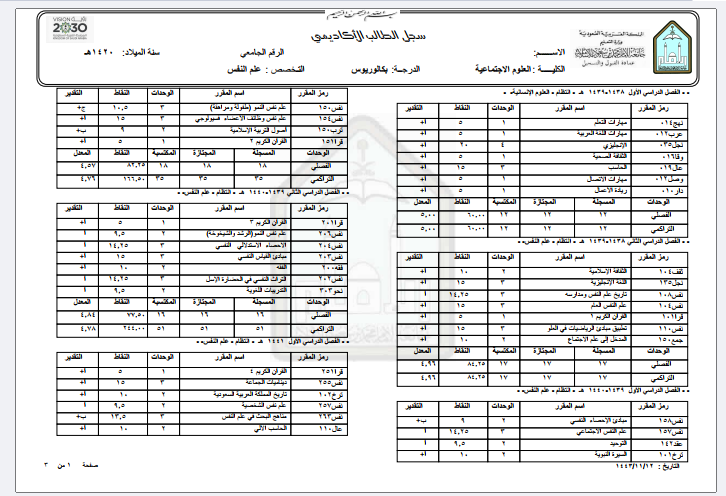 بسم الله الرحمن الرحيم
سجل الطالب الأكاديمي
المملكة العربية السعودية
وزارة التعليم
عمادة القبول والتسجيل
VISION رؤية
2030
الاســـم:
الرقم الجامعي
سنة الميلاد: ١٤٢٠هـ
الكليــة: العلوم الاجتماعية
الدرجـة: بكالوريوس
التخصص: علم النفس
- - الفصل الدراسي الأول ١٤٣٨-١٤٣٩ هـ - انتظام - العلوم الإنسانية- -
رمز المقرر اسم المقرر الوحدات النقاط التقدير
نهج٠١٤ مهارات التعلم ١ ٥ أ+
عرب٠١٢ مهارات اللغة العربية ١ ٥ أ+
نجل٠٣٥ الإنجليزي ٤ ٢٠ أ+
وقا٠١٦ الثقافة الصحية ١ ٥ أ+
عال٠١٩ الحاسب ٣ ١٥ أ+
وصل٠١٢ مهارات الاتصال ١ ٥ أ+
دار٠١٠ ريادة الأعمال ١ ٥ أ+
الوحدات المسجلة المجتازة المكتسبة النقاط المعدل
الفصلي ١٢ ١٢ ١٢ ٦٠.٠٠ ٥,٠٠
التراكمي ١٢ ١٢ ١٢ ٦٠.٠٠ ٥,٠٠
- - الفصل الدراسي الثاني ١٤٣٨-١٤٣٩ هـ - انتظام - علم النفس- -
رمز المقرر اسم المقرر الوحدات النقاط التقدير
ثقف١٠٤ الثقافة الإسلامية ٢ ١٠ أ+
نجل١٣٥ اللغة الإنجليزية ٣ ١٥ أ+
نفس١٠٨ تاريخ علم النفس ومدارسه ٣ ١٤,٢٥ أ
نفس١٠٤ علم النفس العام ٣ ١٥ أ+
قرأ١٠١ القرآن الكريم ١ ١ ٥ أ+
نفس١١٠ تطبيق مبادئ الرياضيات في العلو ٣ ١٥ أ+
جمع١٥٠ المدخل إلى علم الاجتماع ٢ ١٠ أ+
الوحدات المسجلة المجتازة المكتسبة النقاط المعدل
الفصلي ١٧ ١٧ ١٧ ٨٤.٢٥ ٤,٩٦
التراكمي ١٧ ١٧ ١٧ ٨٤.٢٥ ٤,٩٦
- - الفصل الدراسي الأول ١٤٣٩-١٤٤٠ هـ - انتظام - علم النفس- -
رمز المقرر اسم المقرر الوحدات النقاط التقدير
نفس١٥٨ مبادئ الإحصاء النفسي ٢ ٩ ب+
نفس١٥٧ علم النفس الاجتماعي ٣ ١٤,٢٥ أ
عقد١٤٢ التوحيد ٢ ٩,٥ أ
ترخ١٠١ السيرة النبوية ٢ ١٠ أ+
رمز المقرر اسم المقرر الوحدات النقاط التقدير
نفس١٥٠ علم نفس النمو (طفولة ومراهقة) ٣ ١٠,٥ ج+
نفس١٥٤ علم نفس وظائف الأعضاء فسيولوجي ٣ ١٥ أ+
ترب١٥٠ أصول التربية الإسلامية ٢ ٩ ب+
قرأ١٥١ القرآن الكريم ٢ ١ ٥ أ+
الوحدات المسجلة المجتازة المكتسبة النقاط المعدل
الفصلي ١٨ ١٨ ١٨ ٨٢.٢٥ ٤,٥٧
التراكمي ٣٥ ٣٥ ٣٥ ١٦٦.٥٠ ٤,٧٦
- - الفصل الدراسي الثاني ١٤٣٩-١٤٤٠ هـ - انتظام - علم النفس- -
رمز المقرر اسم المقرر الوحدات النقاط التقدير
قرأ٢٠١ القرآن الكريم ٣ ١ ٥ أ+
نفس٢٠٦ علم نفس النمو(الرشد والشيخوخة) ٢ ٩,٥ أ
نفس٢٠٤ الإحصاء الاستدلالي النفسي ٣ ١٤,٢٥ أ
نفس٢٠٣ مبادئ القياس النفسي ٣ ١٥ أ+
فقه٢٠٠ الفقه ٢ ١٠ أ+
نفس٢٠٢ التراث النفسي في الحضارة الإسل ٣ ١٤,٢٥ أ
نحو٣٠٣ التدريبات اللغوية ٢ ٩,٥ أ
الوحدات المسجلة المجتازة المكتسبة النقاط المعدل
الفصلي ١٦ ١٦ ١٦ ٧٧.٥٠ ٤,٨٤
التراكمي ٥١ ٥١ ٥١ ٢٤٤.٠٠ ٤,٧٨
- - الفصل الدراسي الأول ١٤٤١ هـ - انتظام - علم النفس- -
رمز المقرر اسم المقرر الوحدات النقاط التقدير
قرأ٢٥١ القرآن الكريم ٤ ١ ٥ أ+
نفس٢٥٥ ديناميات الجماعة ٣ ١٥ أ+
ترخ١٠٢ تاريخ المملكة العربية السعودية ٢ ١٠ أ+
نفس٢٥٧ علم نفس الشخصية ٢ ٩,٥ أ
نفس٢٦٣ مناهج البحث في علم النفس ٣ ١٣,٥ ب+
عال١١٠ الحاسب الآلي ٢ ١٠ أ+
التاريخ : ١٤٤٣/١١/١٢
صفحة ١ من ٣